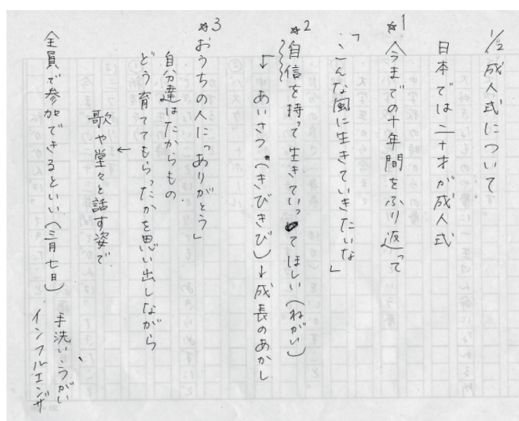 1/2成人式について
日本では二十才が成人式
*1 今までの十年間をふり返って
「こんな風に生きていきたいな」
*2 自信を持って生きていってほしい(ねがい)
↓ あいさつ(きびきび)↓成長のあかし
*3 おうちの人に「ありがとう」
自分達はたからもの
どう育ててもらったかを思い出しながら
↓
歌や堂々と話す姿で
全員で参加できるといい(三月七日)
手洗い・うがい
インフルエンザ